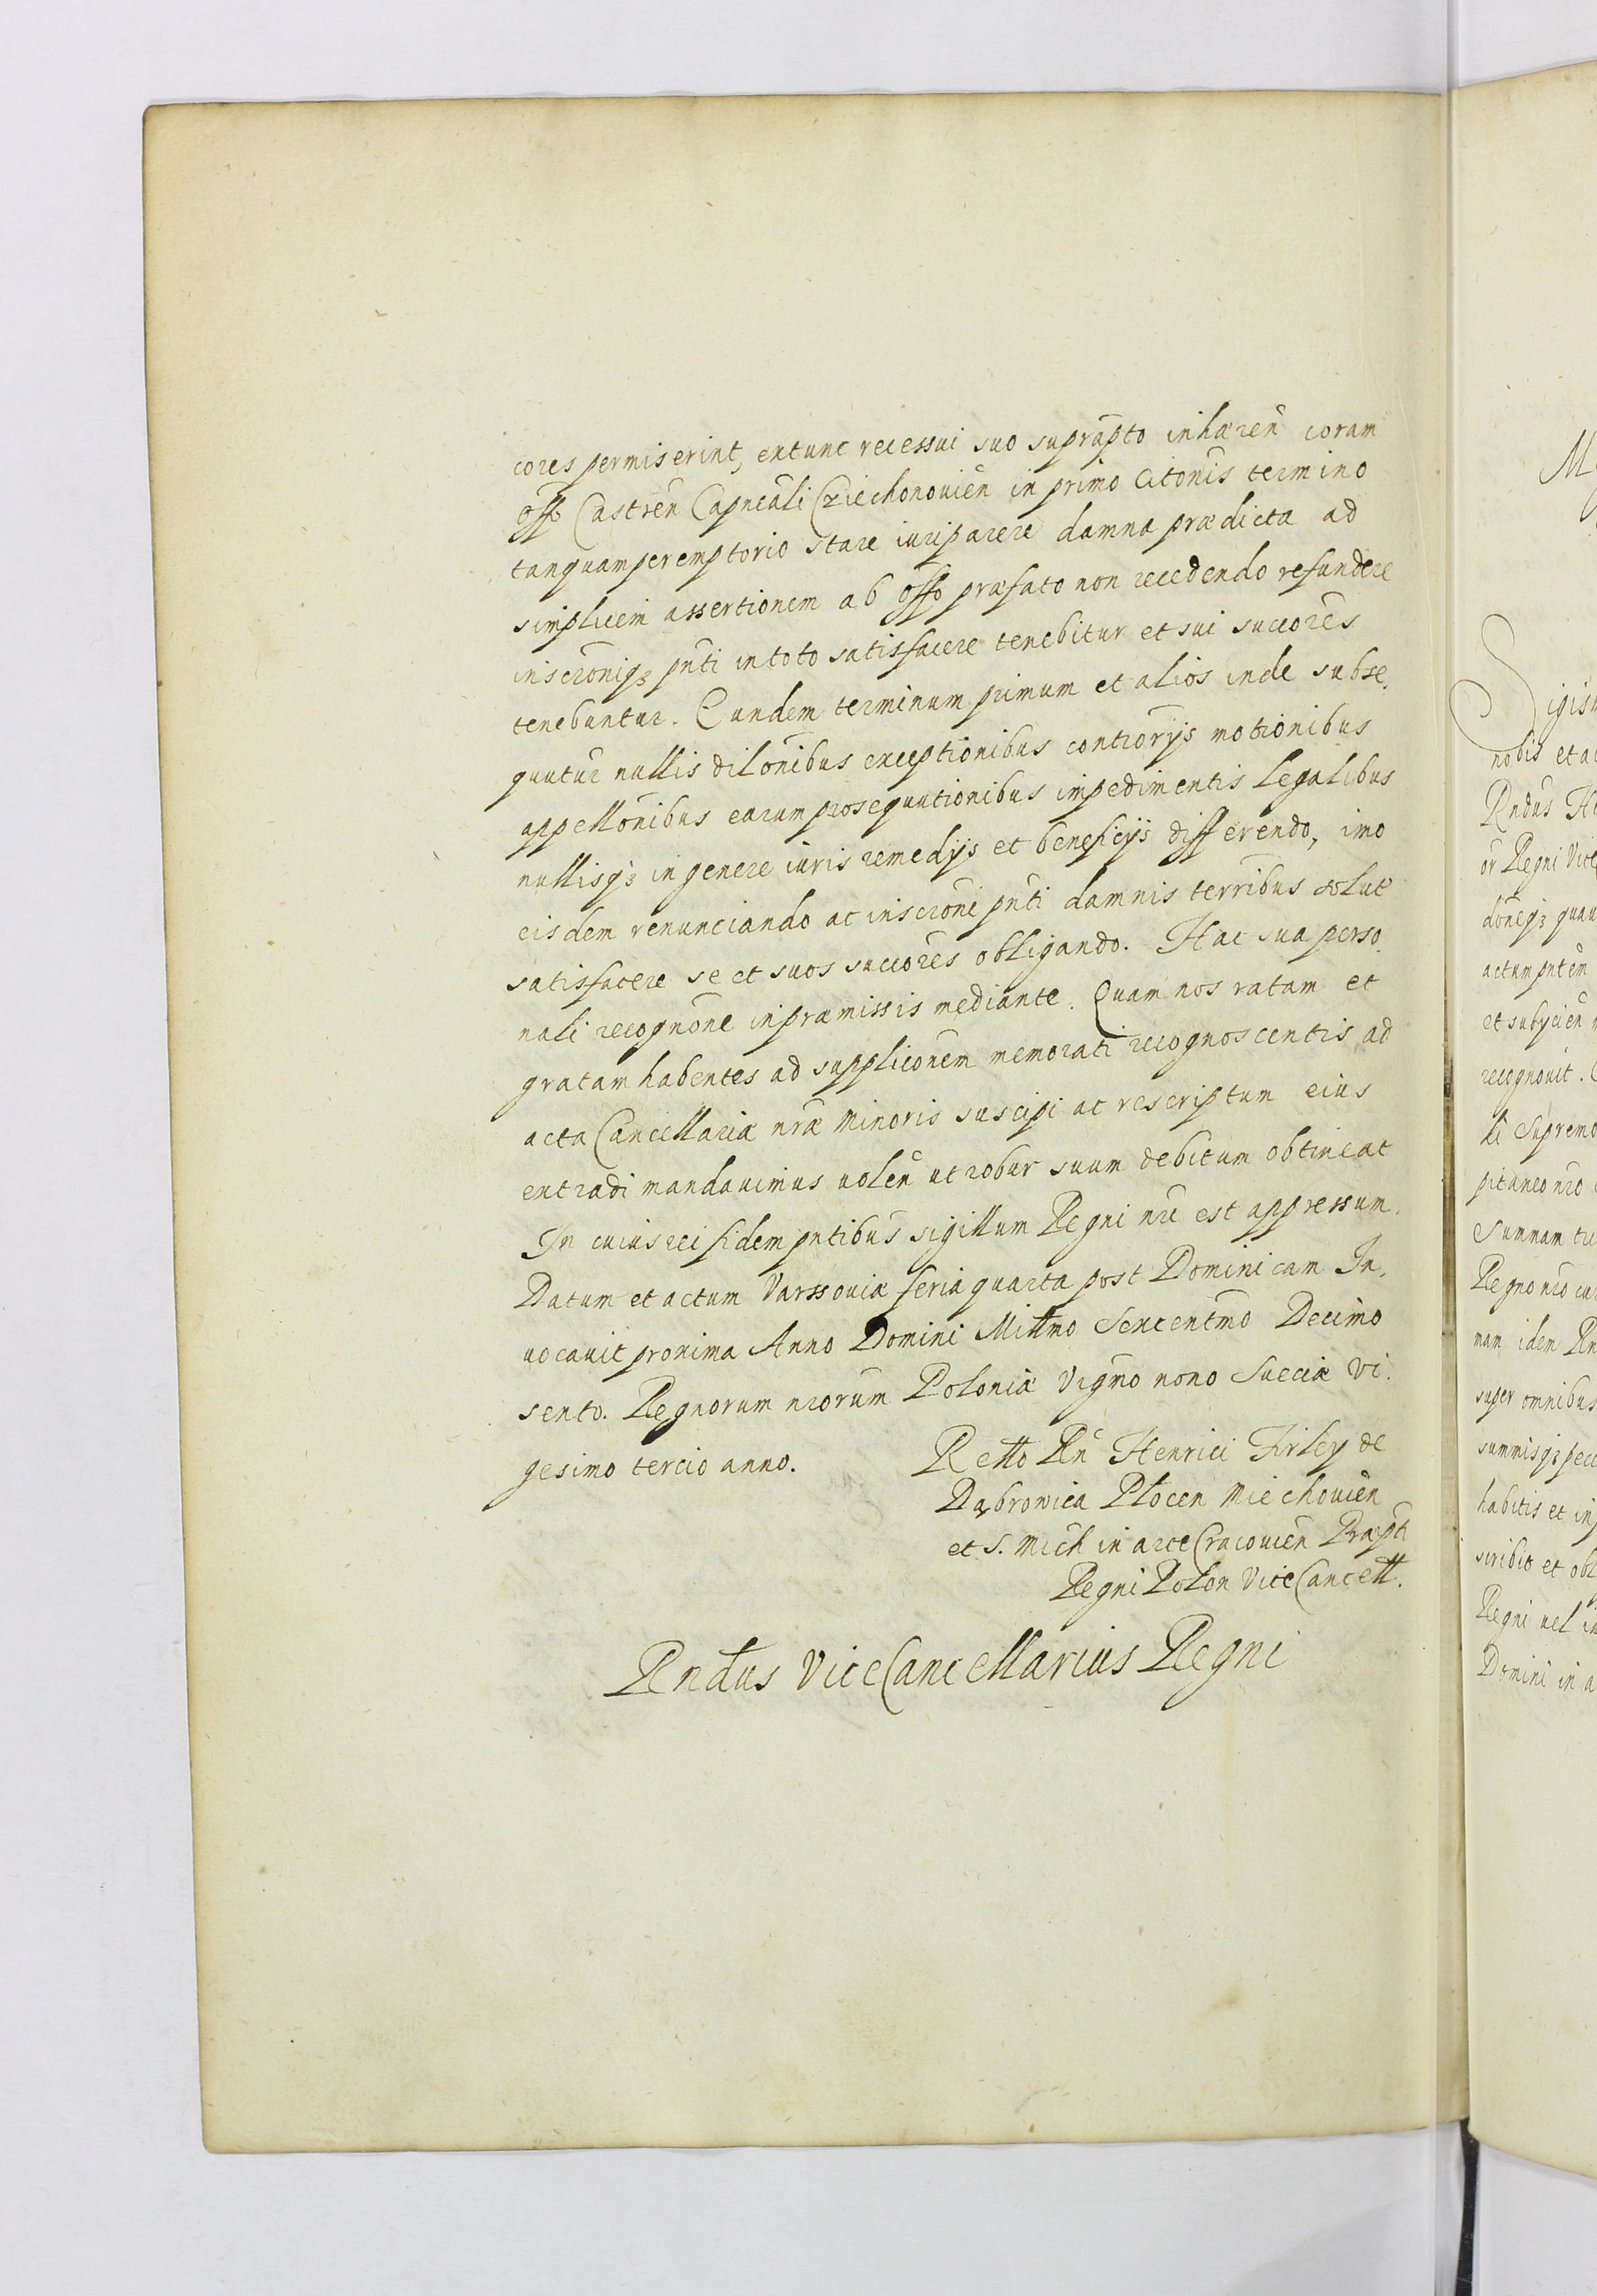 cores permiserint, extunc recessui suo suprapto inhæren̄ coram
offo Castren̄ Capneali Cziechonouien̄ in primo Citonis termino
tanquam peremptorio stare iuri parere damna prædicta ad
simplicem assertionem ab offo præfato non recedendo refundere
inscronigȝ pn̄ti in toto satisfacere tenebitur et sui succores
tenebuntur. Eundem terminum primum et alios inde subse.
quutur nullis dilonibus exceptionibus controrÿs motionibus
appellonibus earum prosequutionibus impedimentis legalibus
nullisqȝ in genere iuris remedÿs et beneficÿs differendo, imo
eisdem renunciando ac inscroni pn̄ti damnis terribus solut
satisfacere se et suos succores obligando. Hac sua perso
nali recognone in præmissis mediante. Quam nos ratam et
gratam habentes ad suppliconem memorati recognoscentis ad
acta Cancellariæ nræ Minoris suscipi ac rescriptum eius
extradi mandauimus uolen̄ ut robur suum debitum obtineat
In cuius rei fidem pn̄tibus sigillum Regni nri est appressum.
Datum et actum Varssouiæ feria quarta post Dominicam In,
uocauit proxima Anno Domini Millmo Sexcentmo Decimo
sexto. Regnorum nrorum Poloniæ Vigmo nono Sueciæ Vi.
gesimo tercio anno.
Retto Rn̄ Henrici Firley de
Dąbrowica Płocen Miechouien̄
et S. Mich in arce Cracouien̄ Præpti
Regni Polon ViceCancell.
Rndus ViceCancellarius Regni
M
Sigism
nobis et ac
Rndus He
or Regni Vice
doneqȝ quau
actum pntem
et subÿcien
recognouit.
li Supremo
pitaneo nro
Summam tri
Regno nro cu
mam idem Rn
super omnibus
summisqȝ pecc
habitis et in
scribit et obl
Regni uel in
Domini in a